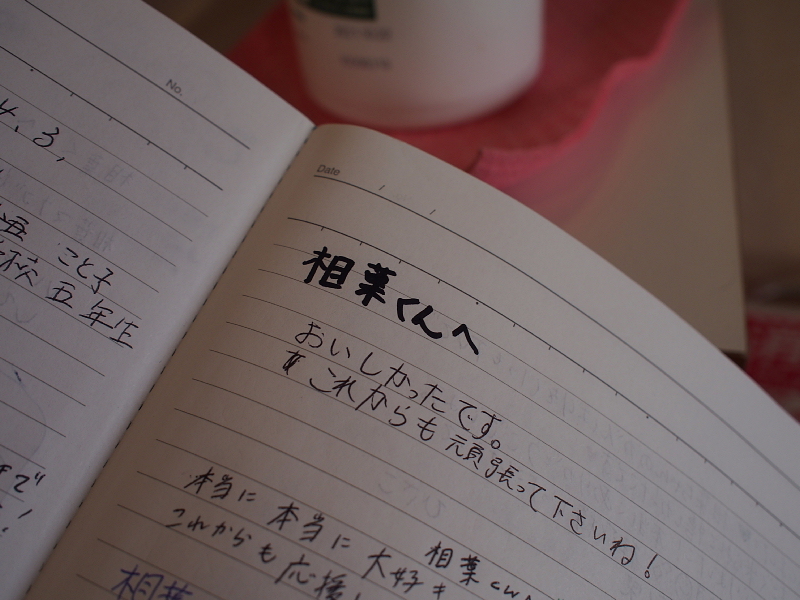 No.
4, 3,
こと子
校 五年生
で
!
Date
相葉くんへ
おいしかったです。
これからも頑張って下さいね!
本当に 本当に 大好き
相葉くん
これからも 応援
相葉